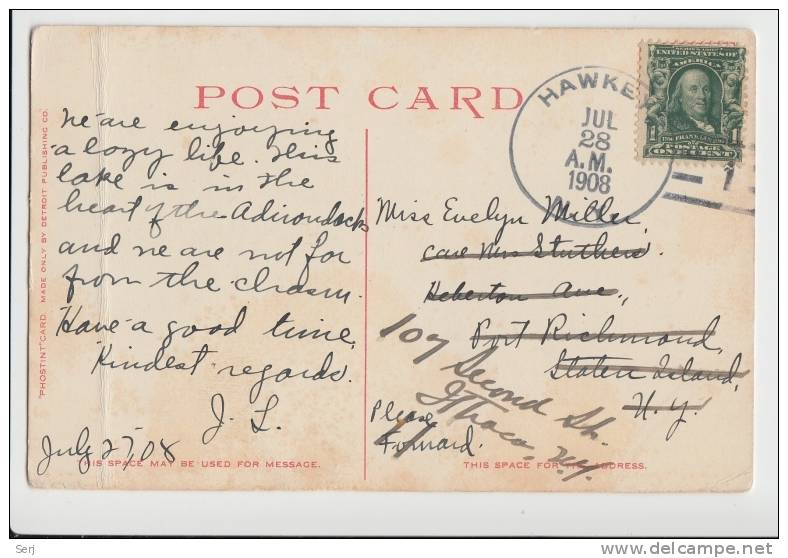 POST CARD
We are enjoying
a lazy life. This
lake is in the
heart of the Adirondacks
and we are not far
from the chasm.
Have a good time.
Kindest regards.
J. L.
July 27, 08
"PHOSTINT" CARD. MADE ONLY BY DETROIT PUBLISHING CO.
HIS SPACE MAY BE USED FOR MESSAGE.
HAWKE
JUL
28
A.M.
1908
SERIES 1902
UNITED STATES OF
AMERICA
FRANKLIN
1 1
POSTAGE
ONE CENT
Miss Evelyn Miller,
care Mrs Struthers.
Heberton Ave.,
Port Richmond,
Staten Island,
N. Y.
107 Second St.
Ithaca, N.Y.
Please
Forward.
THIS SPACE FOR THE ADDRESS.
Serj
www.delcampe.net